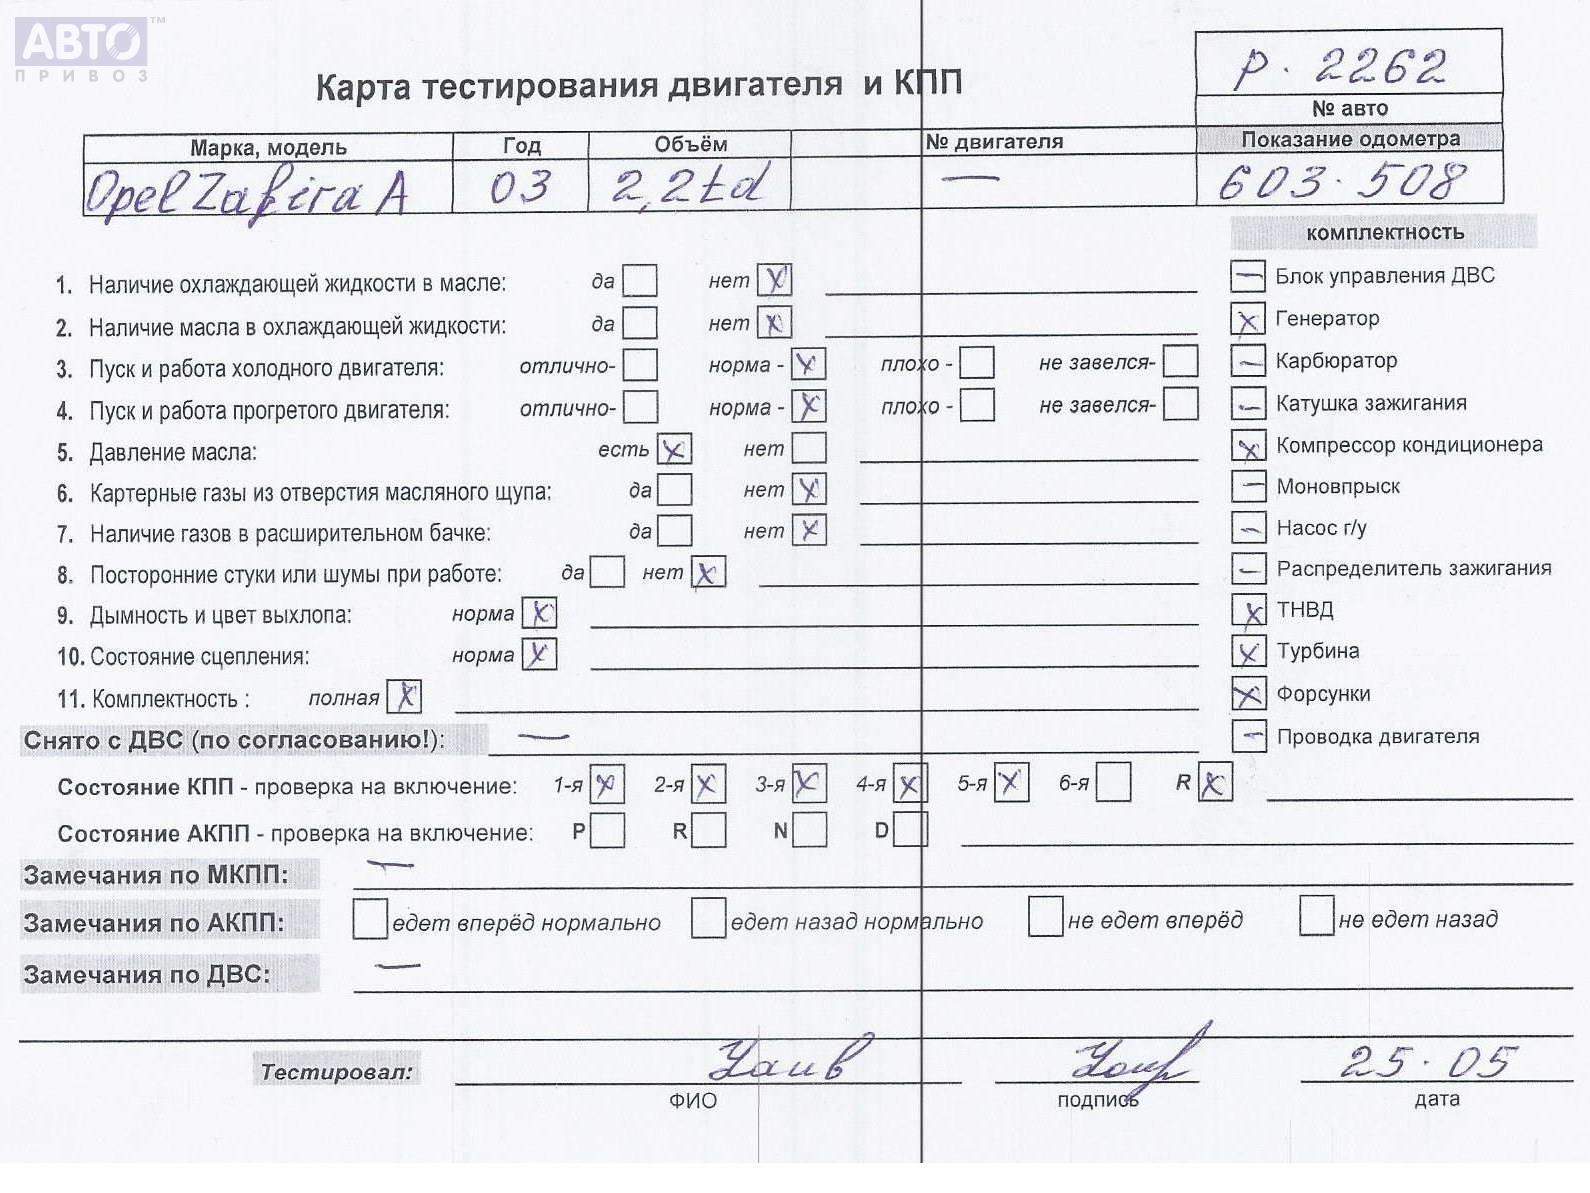 АВТО™
ПРИВОЗ
р. 2262
Карта тестирования двигателя и КПП
№ авто
Марка, модель Год Объём № двигателя Показание одометра
Opel Zafira A 03 2,2td — 603.508
комплектность
1. Наличие охлаждающей жидкости в масле: да нет X
— Блок управления ДВС
2. Наличие масла в охлаждающей жидкости: да нет X
X Генератор
3. Пуск и работа холодного двигателя: отлично- норма - X плохо - не завелся-
— Карбюратор
4. Пуск и работа прогретого двигателя: отлично- норма - X плохо - не завелся-
— Катушка зажигания
5. Давление масла: есть X нет
X Компрессор кондиционера
6. Картерные газы из отверстия масляного щупа: да нет X
— Моновпрыск
7. Наличие газов в расширительном бачке: да нет X
— Насос г/у
8. Посторонние стуки или шумы при работе: да нет X
— Распределитель зажигания
9. Дымность и цвет выхлопа: норма X
X ТНВД
10. Состояние сцепления: норма X
X Турбина
11. Комплектность : полная X
X Форсунки
Снято с ДВС (по согласованию!): —
— Проводка двигателя
Состояние КПП - проверка на включение: 1-я X 2-я X 3-я X 4-я X 5-я X 6-я R X
Состояние АКПП - проверка на включение: P R N D
Замечания по МКПП: —
Замечания по АКПП: едет вперёд нормально едет назад нормально не едет вперёд не едет назад
Замечания по ДВС: —
Тестировал: 25.05
ФИО подпись дата